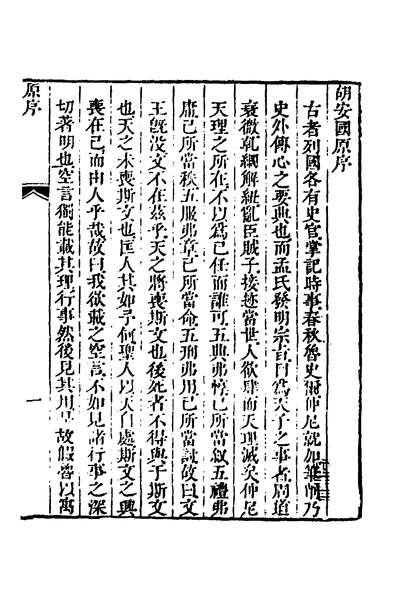 胡安國原序
古者列國各有史官掌記時事春秋魯史爾仲尼就加筆削乃
史外傳心之要典也而孟氏發明宗旨目爲天子之事者周道
衰微乾綱解紐亂臣賊子接迹當世人欲肆而天理滅矣仲尼
天理之所在不以爲己任而誰可五典弗惇己所當叙五禮弗
庸己所當秩五服弗章己所當命五刑弗用己所當討故曰文
王旣没文不在兹乎天之將喪斯文也後死者不得與于斯文
也天之未喪斯文也匡人其如予何聖人以天自處斯文之興
喪在己而由人乎哉故曰我欲載之空言不如見諸行事之深
切著明也空言獨能載其理行事然後見其用是故假魯以寓
原序
一